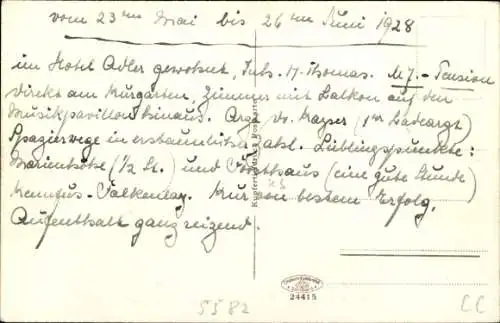 vom 23ten Mai bis 26ten Juni 1928
im Hotel Adler gewohnt, Inh. H. Thomas. M 7.- Pension
direkt am Kurgarten, Zimmer mit Balkon auf den
Musikpavillon hinaus. Arzt Dr. Kayser (1er Badearzt)
Spazierwege in erstaunlicher Zahl. Lieblingspunkte:
Marienhöhe (1/2 St.) und Forsthaus (eine gute Stunde)
Kennfus-Falkenlay. Kur von bestem Erfolg.
Aufenthalt ganz reizend.
24415
5582
CC